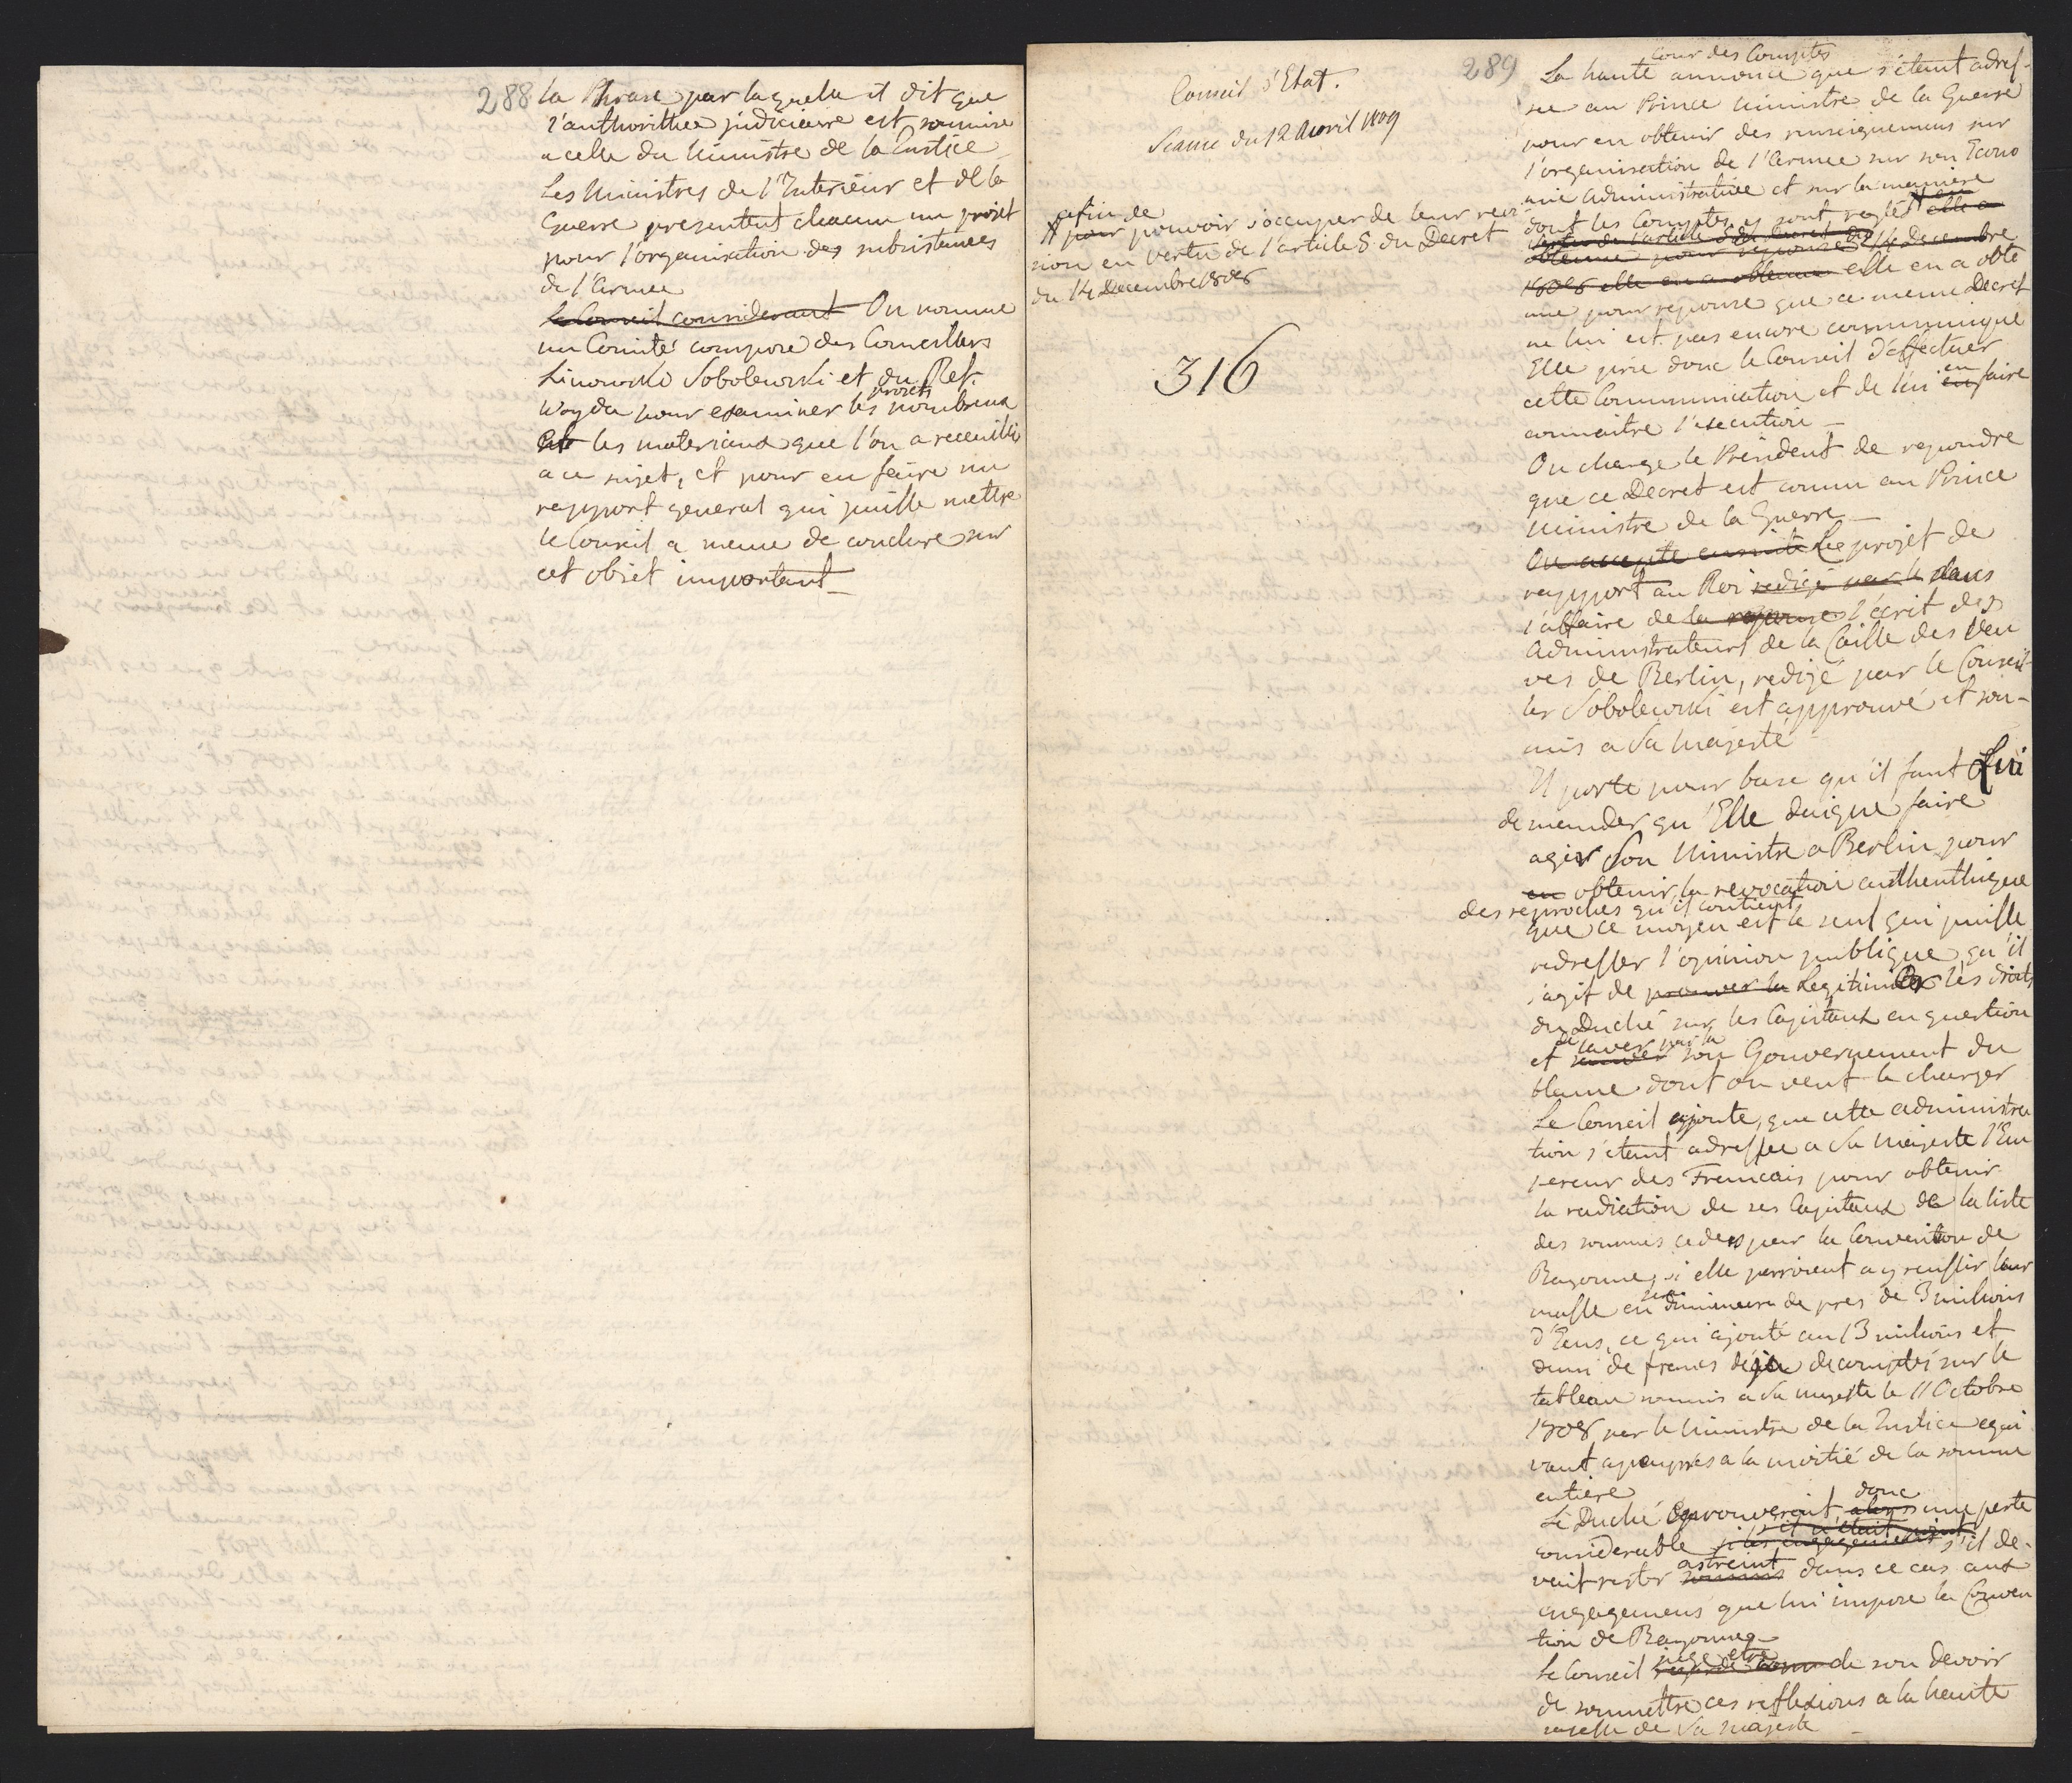 288
la Phrase par laquelle il dit que
l'authorithée judiciaire est soumise
a celle du Ministre de la Justice
Les Ministres de l'Interieur et de la
Guerre presentent chacun un projet
pour l'organisation des subsistances
de l'Armée
Le Conseil considerant On nomme
un Comité composé des Conseillers
Linowski Sobolewski et du Ref.
projets
Woyda pour examiner les nombreux
et les materiaux que l'on a recueillis
a ce sujet, et pour en faire un
rapport general qui puisse mettre
le Conseil a meme de conclure sur
cet objet important
289
Conseil d'Etat.
Seance du 12 Avril 1809
afin de
pour pouvoir s'occuper de leur revi-
sion en vertu de l'article 5 du Decret
du 14 Decembre 1808
316
cour des Comptes
La haute annonce que s'etant adres-
sée au Prince Ministre de la Guerre
pour en obtenir des renseignemens sur
l'organisation de l'Armée sur son Econo
mie administrative et sur la maniere
dont les Comptes y sont reglés en
elle a
vertu de l'article 5 du Decret du 14 Decembre
obtenue pour reponse
1808 elle en a obtenue elle en a obte
nue pour reponse que ce meme Decret
ne lui est pas encore communiqué
Elle prie donc le Conseil d'effectuer
cette Communication et de lui en faire
connaitre l'execution
On charge le President de repondre
que ce Decret est connu au Prince
Ministre de la Guerre
On accepte ensuite Le projet de
rapport au Roi redigé par le dans
l'affaire de la reponse l'écrit des
administrateurs de la Caisse des Veu
ves de Berlin, redigé par le Conseil-
ler Sobolewski est approuvé et sou-
mis a Sa Majesté
Il porte pour base qu'il faut Lui
demander qu'Elle daigne faire
agir Son Ministre a Berlin pour
en obtenir la revocation authenthique
des reproches qu'il contient
que ce moyen est le seul qui puisse
redresser l'opinion publique, qu'il
s'agit de prouver la Legitimer les droits
du Duché sur les Capitaux en question
de laver par la
et son Gouvernement du
blame dont on veut le charger
Le Conseil ajoute, que cette administra
tion s'étant adressée a Sa Majesté l'Em
pereur des Francais pour obtenir
la radiation de ses Capitaux de la liste
des sommes cedées par la Convention de
Bayonne, si elle parvient a y reussir leur
masse en sera diminuée de pres de 3 milions
d'Ecus, ce qui ajouté au 13 milions et
demi de francs déja decomptés sur le
tableau soumis a Sa Majesté le 11 Octobre
1808 par le Ministre de la Justice equi
vaut apeuprés a la moitié de la somme
entiere
donc
Le Duché éprouverait alors une perte
s'il n'etait point
considerable si les engagemens s'il de-
astreint
vait rester soumis dans ce cas aux
engagemens que lui impose la Conven
tion de Bayonne
juge etre
Le Conseil regarde comme de son devoir
de soumettre ces reflexions a la haute
sagesse de Sa Majesté